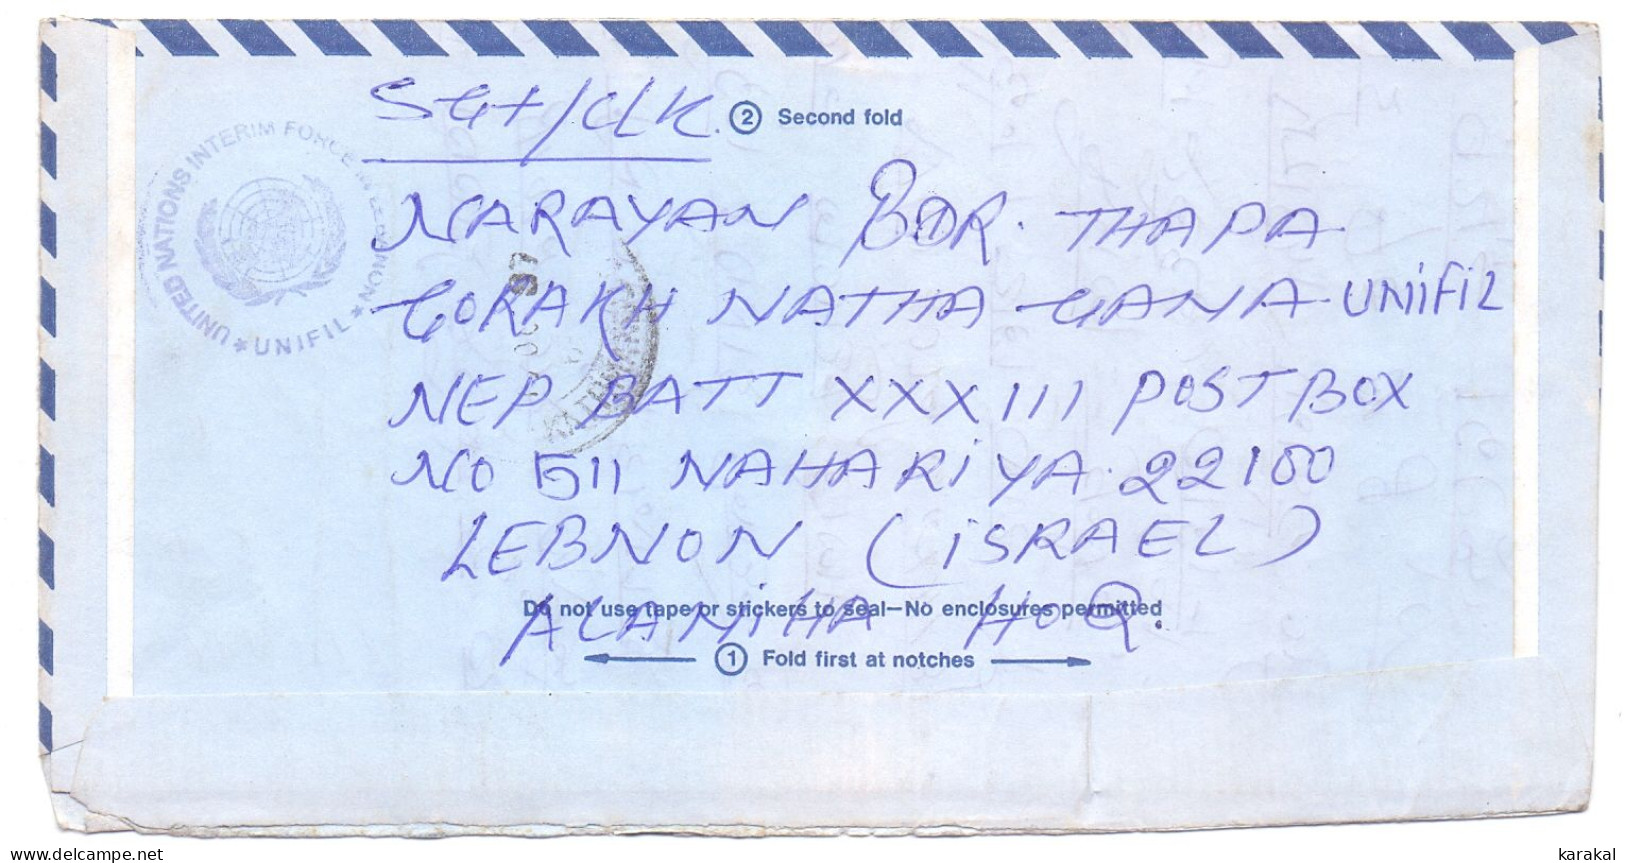 SGT/CLK.
② Second fold
UNITED NATIONS INTERIM FORCE IN LEBANON
* UNIFIL *
NARAYAN BDR. THAPA
GORAKH NATHA GANA UNIFIL
NEP BATT XXXIII POST BOX
NO 511 NAHARIYA. 22100
LEBNON (iSRAEL)
Do not use tape or stickers to seal—No enclosures permitted
ALANiHA HOQ.
① Fold first at notches
97
delcampe.net
karakal